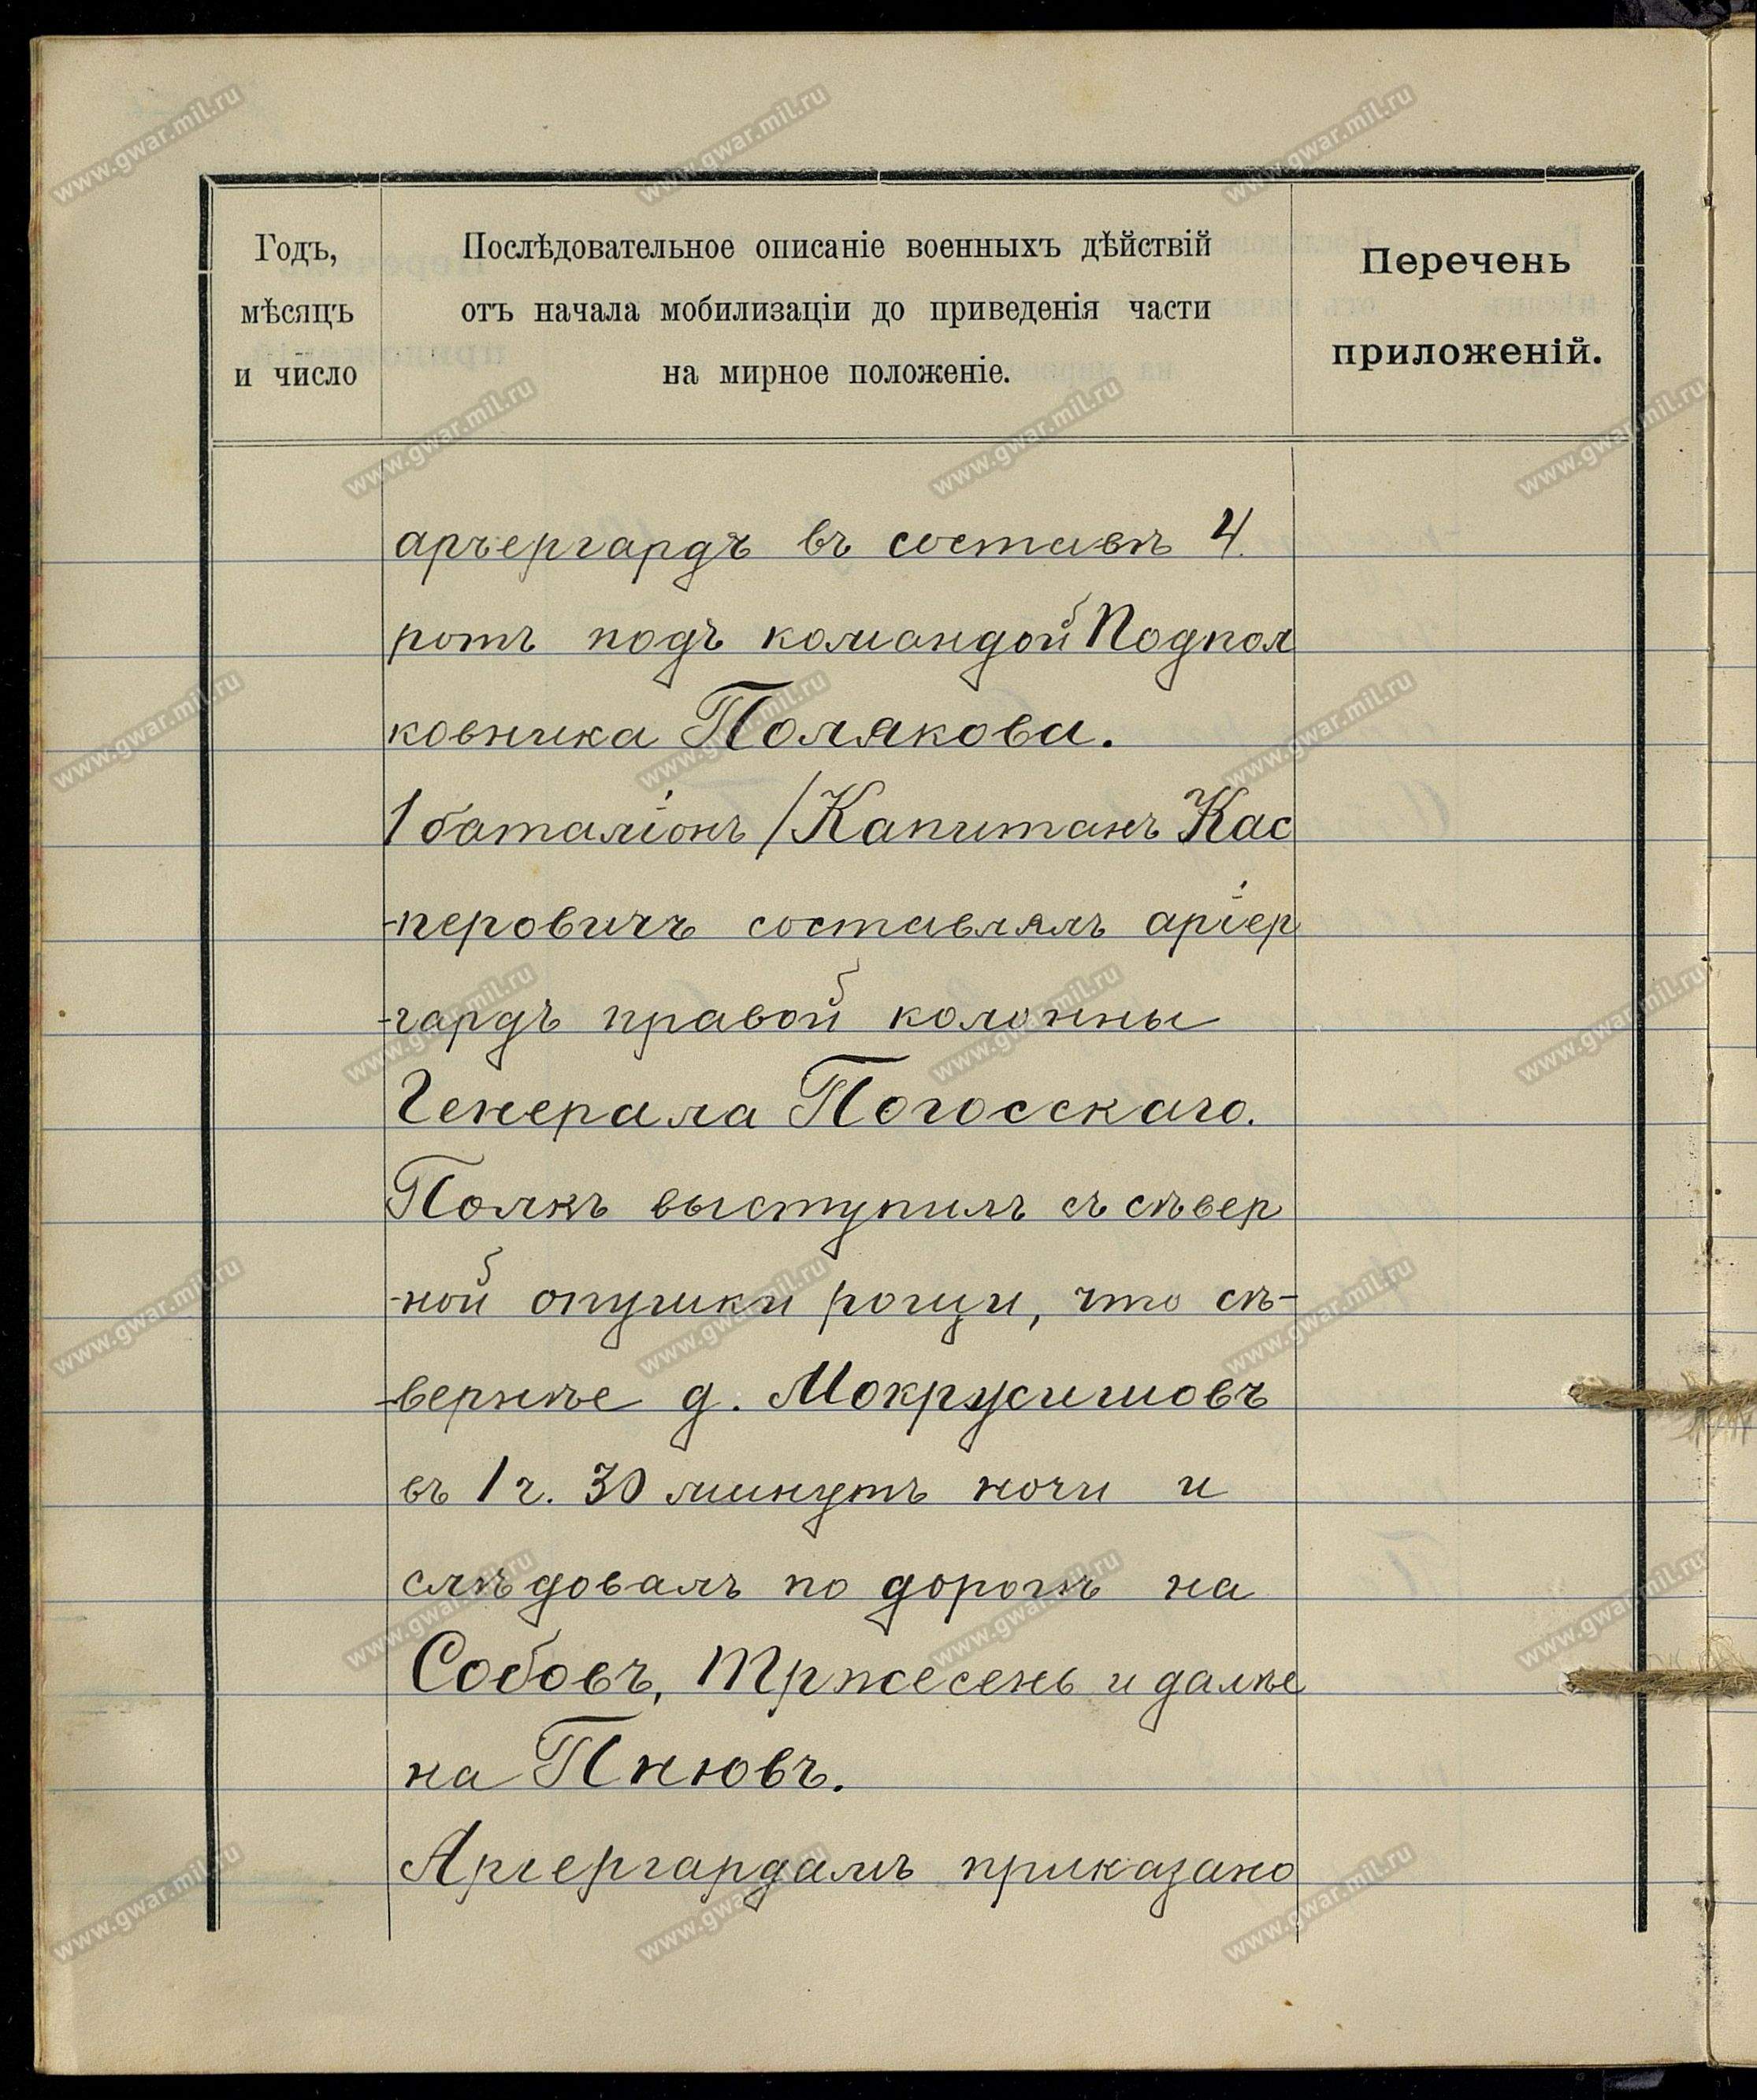 Годъ,
мѣсяцъ
и число
Послѣдовательное описаніе военныхъ дѣйствій
отъ начала мобилизаціи до приведенія части
на мирное положеніе.
Перечень
приложеній.
арьергардъ въ составѣ 4
ротъ подъ командой Подпол
ковника Полякова.
1 баталіонъ /Капитанъ Кас
-перовичъ составлялъ аріер
-гардъ правой колонны
Генерала Погосскаго.
Полкъ выступилъ съ сѣвер
-ной опушки рощи, что сѣ-
-вернѣе д. Мокрусишовъ
въ 1 ч. 30 минутъ ночи и
слѣдовалъ по дорогѣ на
Собовъ, Тржесень и далѣе
на Пнювъ.
Арiергардамъ приказано
www.gwar.mil.ru